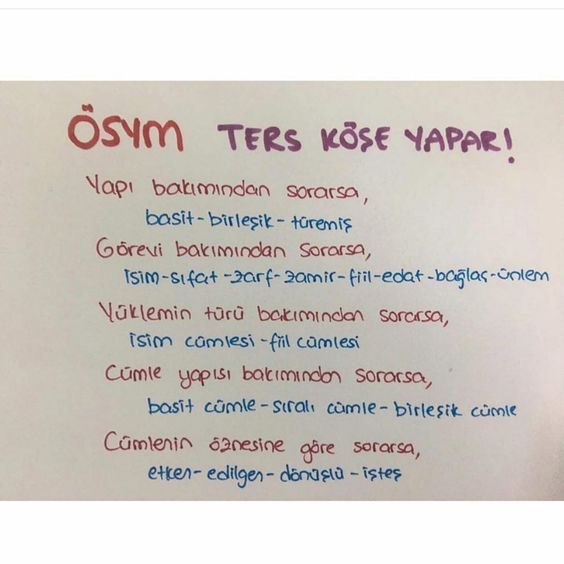 ÖSYM TERS KÖŞE YAPAR!
Yapı bakımından sorarsa,
basit-birleşik-türemiş
Görevi bakımından sorarsa,
isim-sıfat-zarf-zamir-fiil-edat-bağlaç-ünlem
Yüklemin türü bakımından sorarsa,
isim cümlesi-fiil cümlesi
Cümle yapısı bakımından sorarsa,
basit cümle-sıralı cümle-birleşik cümle
Cümlenin öznesine göre sorarsa,
etken-edilgen-dönüşlü-işteş